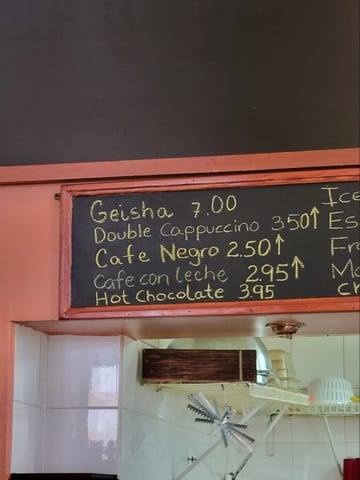 Geisha 7.00
Double Cappuccino 3.50↑
Cafe Negro 2.50↑
Cafe con leche 2.95↑
Hot Chocolate 3.95
Ice
Es
Fr